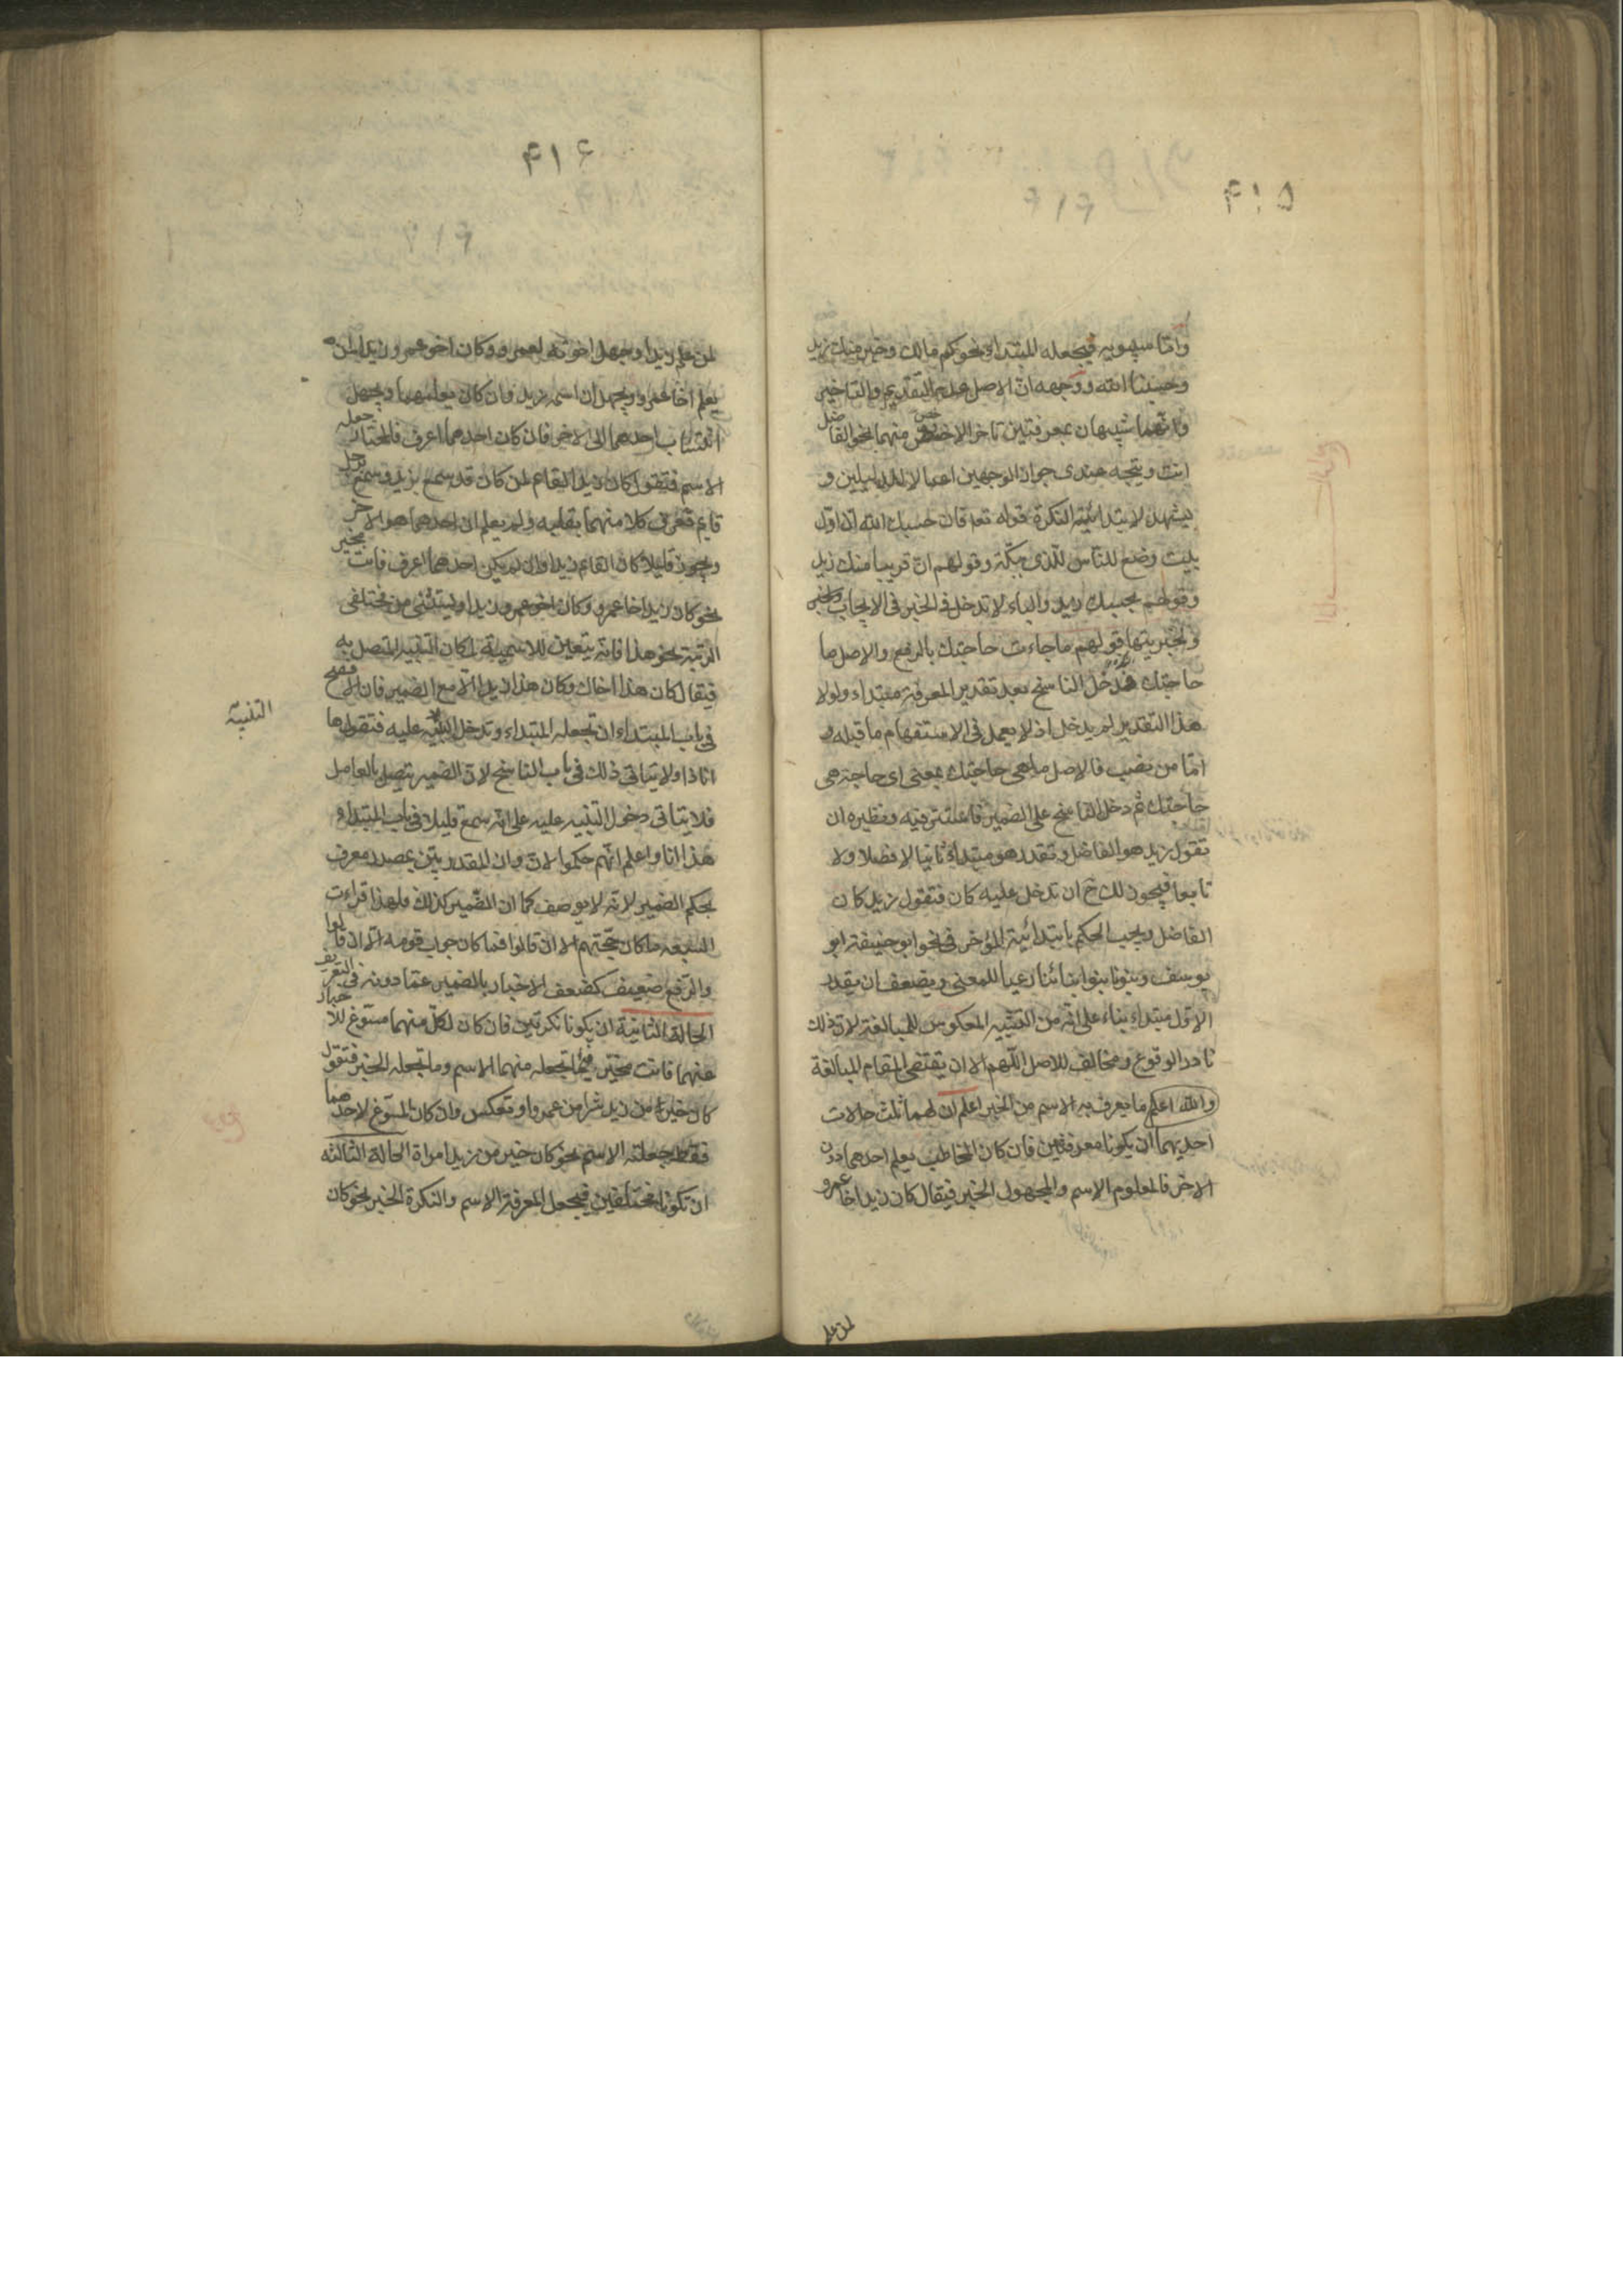 ۴۱۵
واما سيبويه فيجعله المبتداء نحو كم مالك وخير منك زيد
وحسبنا الله ووجهه ان الاصل عدم التقديم والتاخير
وانهما شبيهان بمعرفتين تاخر الاخص منهما نحو الفاضل
انت ويتجه عندى جواز الوجهين اعمالا للدليلين و
يشهد لابتدائية النكرة قوله تعا فان حسبك الله ان اول
بيت وضع للناس للذى ببكة وقولهم ان قريبا منك زيد
وقولهم بحسبك زيد والباء لا تدخل فى الخبر فى الايجاب
ولخبريتها قولهم ما جاءت حاجتك بالرفع والاصل ما
حاجتك فدخل الناسخ بعد تقدير المعرفة مبتداء ولولا
هذا التقدير لم يدخل اذ لا يعمل فى الاستفهام ما قبله و
امّا من نصب فالاصل ما هى حاجتك بمعنى اى حاجة هى
حاجتك ثم دخل الناسخ على الضمير فاستتر فيه ونظيره ان
تقول زيد هو الفاضل وتقدر هو مبتداء ثانيا لا فصلا ولا
تابعا فيجوز لك ح ان تدخل عليه كان فتقول زيد كان
الفاضل ويجب الحكم بابتدائية المؤخر فى نحو ابو حنيفة ابو
يوسف وبنونا بنوا ابنائنا رعيا للمعنى ويضعف ان يقدر
الاول مبتداء بناء على انه من التشبيه المعكوس للمبالغة لان ذلك
نادر الوقوع ومخالف للاصل اللهم الا ان يقتضى المقام المبالغة
والله اعلم ما يعرف به الاسم من الخبر اعلم ان لهما ثلث حالات
احديهما ان يكونا معرفتين فان كان المخاطب يعلم احدهما دون
الاخر فالمعلوم الاسم والمجهول الخبر فيقال كان زيد اخا عمرو
لمن علم
۴۱۶
لمن علم زيدا وجهل اخوته لعمرو وكان اخو عمرو زيدا لمن
يعلم اخا عمرو ويجهل ان اسمه زيد فان كان يعلمهما ويجهل
انتساب احدهما الى الاخر فان كان احدهما اعرف فالمختار جعله
الاسم فتقول كان زيد القائم لمن كان قد سمع بزيد وسمع برجل
قايم فعرف كلا منهما بقلبه ولم يعلم ان احدهما هو الاخر
ويجوز قليلا كان القائم زيدا وان لم يكن احدهما اعرف فانت مخير
نحو كان زيد اخا عمرو وكان اخو عمرو زيدا ويستثنى من مختلفى
الرتبة نحو هذا فانه يتعين للاسمية لمكان التنبيه المتصل به
فيقال كان هذا اخاك وكان هذا زيدا الا مع الضمير فان الافصح
فى باب المبتداء ان تجعله المبتداء وتدخل التنبيه عليه فتقول ها
انا ذا ولا يتاتى ذلك فى باب الناسخ لان الضمير يتصل بالعامل
فلا يتاتى دخول التنبيه عليه على انه سمع قليلا فى باب المبتداء
هذا انا واعلم انهم حكموا لان وان المقدرتين بمصدر معرف
بحكم الضمير لانه لا يوصف كما ان الضمير كذلك فلهذا قراءت
السبعه ما كان حجتهم الا ان قالوا فما كان جواب قومه الا ان قالوا
والرفع ضعيف كضعف الاخبار بالضمير عما دونه فى التعريف
الحالة الثانية ان يكونا نكرتين فان كان لكل منهما مسوغ للاخبار
عنهما فانت مخير فيما تجعله منهما الاسم وما تجعله الخبر فتقول
كان خير من زيد شرا من عمرو او تعكس وان كان المسوغ لاحدهما
فقط جعلته الاسم نحو كان خير من زيد امراة الحالة الثالثه
ان تكونا مختلفين فيجعل المعرفة الاسم والنكرة الخبر نحو كان
التنبيه